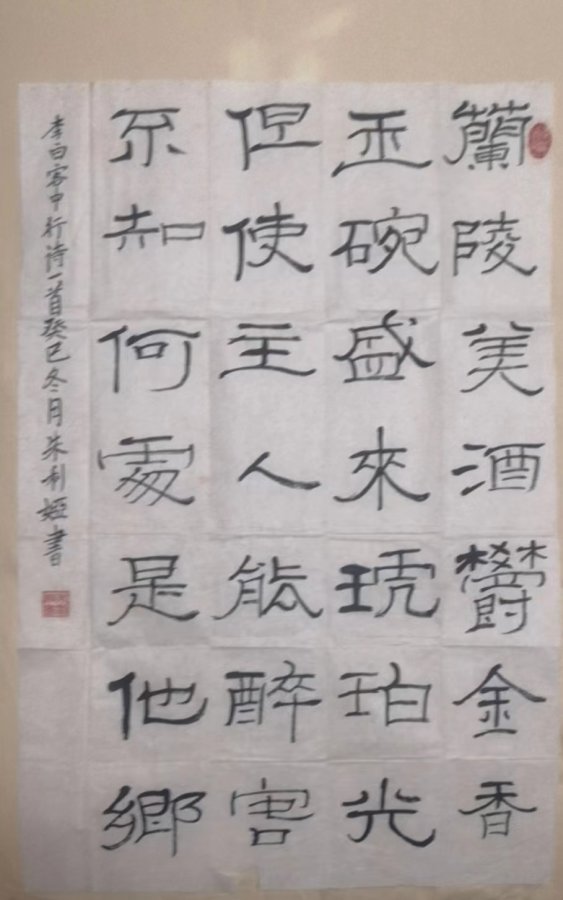 蘭陵美酒鬱金香
玉碗盛來琥珀光
但使主人能醉客
不知何處是他鄉
李白客中行詩一首癸巳冬月朱利姬書